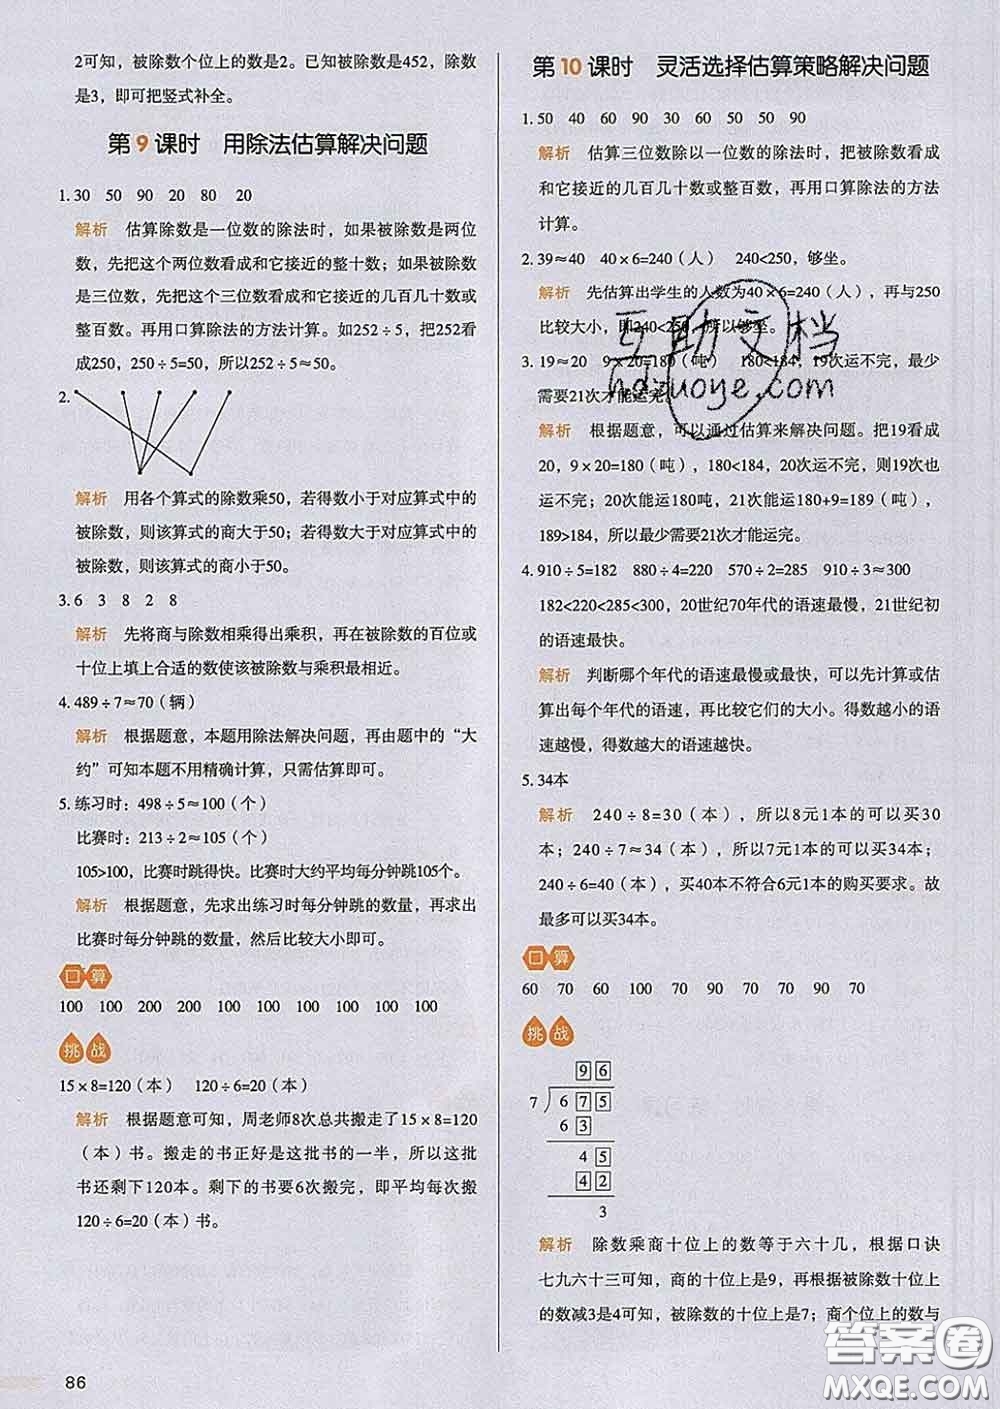 2可知，被除数个位上的数是2。已知被除数是452，除数
是3，即可把竖式补全。
第9课时　用除法估算解决问题
1. 30　50　90　20　80　20
解析　估算除数是一位数的除法时，如果被除数是两位
数，先把这个两位数看成和它接近的整十数；如果被除数
是三位数，先把这个三位数看成和它接近的几百几十数或
整百数。再用口算除法的方法计算。如252÷5，把252看
成250，250÷5=50，所以252÷5≈50。
2.
解析　用各个算式的除数乘50，若得数小于对应算式中的
被除数，则该算式的商大于50；若得数大于对应算式中的
被除数，则该算式的商小于50。
3. 6　3　8　2　8
解析　先将商与除数相乘得出乘积，再在被除数的百位或
十位上填上合适的数使该被除数与乘积最相近。
4. 489÷7≈70（辆）
解析　根据题意，本题用除法解决问题，再由题中的“大
约”可知本题不用精确计算，只需估算即可。
5. 练习时：498÷5≈100（个）
比赛时：213÷2≈105（个）
105>100，比赛时跳得快。比赛时大约平均每分钟跳105个。
解析　根据题意，先求出练习时每分钟跳的数量，再求出
比赛时每分钟跳的数量，然后比较大小即可。
口算
100　100　200　200　100　100　100　100　100　100
挑战
15×8=120（本）　120÷6=20（本）
解析　根据题意可知，周老师8次总共搬走了15×8=120
（本）书。搬走的书正好是这批书的一半，所以这批
书还剩下120本。剩下的书要6次搬完，即平均每次搬
120÷6=20（本）书。
86
第10课时　灵活选择估算策略解决问题
1. 50　40　60　90　30　60　50　50　90
解析　估算三位数除以一位数的除法时，把被除数看成
和它接近的几百几十数或整百数，再用口算除法的方法
计算。
2. 39≈40　40×6=240（人）　240<250，够坐。
解析　先估算出学生的人数为40×6=240（人），再与250
比较大小，即240<250，所以够坐。
3. 19≈20　9×20=180（吨）　180<184，19次运不完，最少
需要21次才能运完。
解析　根据题意，可以通过估算来解决问题。把19看成
20，9×20=180（吨），180<184，20次运不完，则19次也
运不完；20次能运180吨，21次能运180+9=189（吨），
189>184，所以最少需要21次才能运完。
4. 910÷5=182　880÷4=220　570÷2=285　910÷3≈300
182<220<285<300，20世纪70年代的语速最慢，21世纪初
的语速最快。
解析　判断哪个年代的语速最慢或最快，可以先计算或估
算出每个年代的语速，再比较它们的大小。得数越小的语
速越慢，得数越大的语速越快。
5. 34本
解析　240÷8=30（本），所以8元1本的可以买30
本；240÷7≈34（本），所以7元1本的可以买34本；
240÷6=40（本），买40本不符合6元1本的购买要求。故
最多可以买34本。
口算
60　70　60　100　70　90　70　90　70
挑战
96
7 675
63
45
42
3
解析　除数乘商十位上的数等于六十几，根据口诀
七九六十三可知，商的十位上是9，再根据被除数十位上
的数减3是4可知，被除数的十位上是7；商个位上的数与
互助文档
hdzuoye.com
答案圈
MXQE.COM